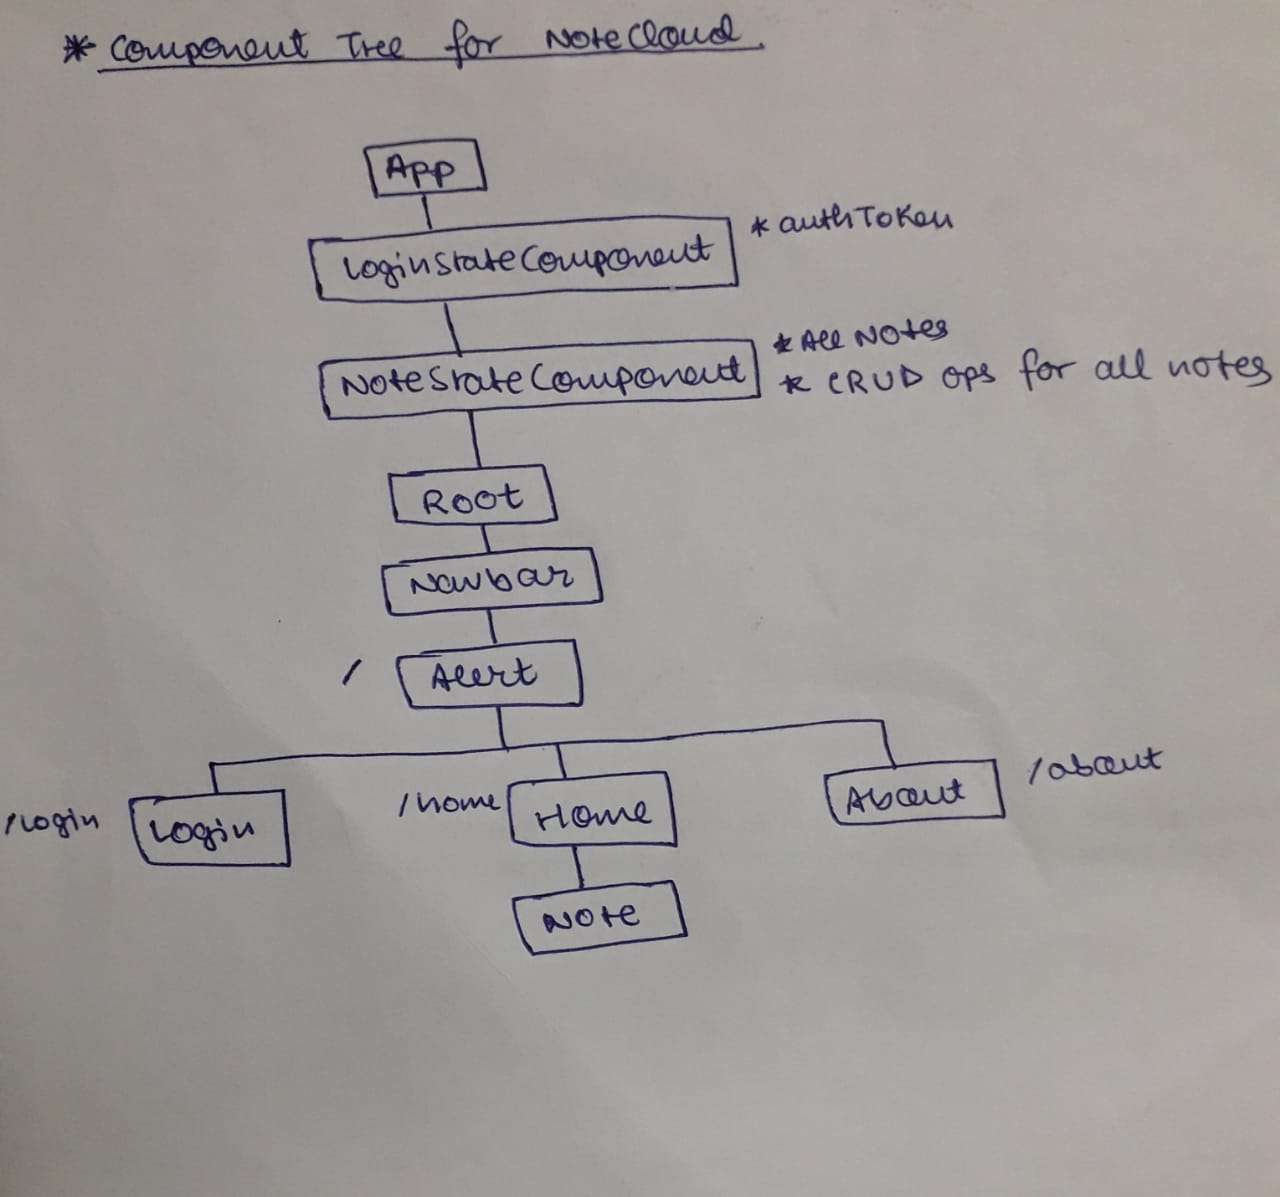 * Component Tree for NoteCloud.
App
LoginStateComponent
* authToken
NoteStateComponent
* All Notes
* CRUD ops for all notes
Root
Navbar
/
Alert
/login
Login
/home
Home
About
/about
Note